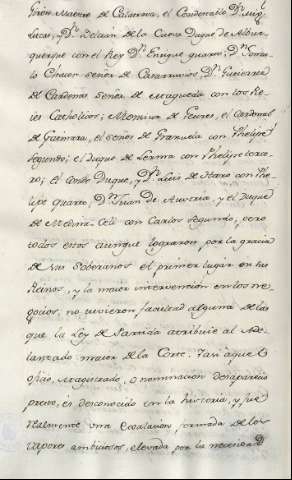 Girón Maestre de Calatrava, el Condestable Dⁿ Mig.ˡ
Lucas, y Dⁿ Beltrán de la Cueva Duque de Albur-
querque con el Rey Dⁿ Enrique quarto, Dⁿ Gonza-
lo Chacon señor de Casarrubios, Dⁿ Gutierre
de Cardenas señor de Maqueda con los Re-
ies Catholicos; el Cardenal
el señor de con Phelipe
segundo; el Duque de Lerma con Phelipe terce-
ro; el conde Duque, y Dⁿ Luis de Haro con Phe-
lipe quarto, Dⁿ Juan de Austria, y el Duque
de Medina-Celi con Carlos segundo, pero
todos estos aunque lograron por la gracia
de sus soberanos el primer lugar en sus
Reinos, y la maior intervencion en los ne-
gocios, no tuvieron facultad alguna de las
que la Ley de Partida atribuie al Ade-
lantado maior de la Corte. Tan aquel
ofizio, Magistrado, o nominacion desaparecio
presto, es desconocido en la historia, y fue
realmente una exalacion formada de los
vapores ambiciosos, elevada por la necesidad